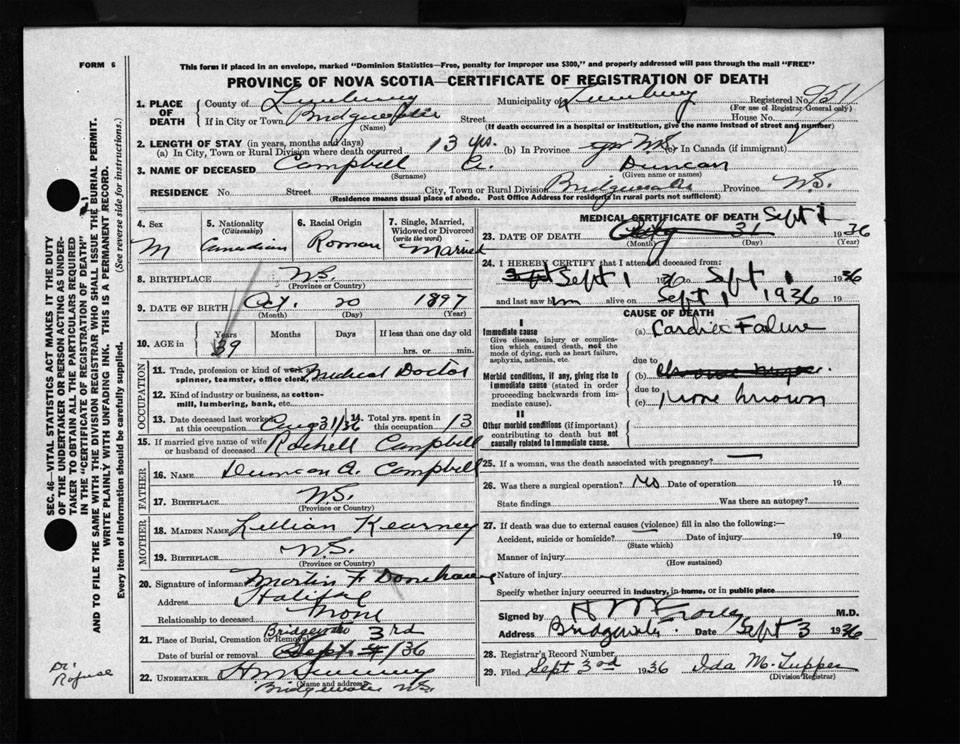 FORM 6
This form if placed in an envelope, marked "Dominion Statistics—Free, penalty for improper use $300," and properly addressed will pass through the mail "FREE"
PROVINCE OF NOVA SCOTIA—CERTIFICATE OF REGISTRATION OF DEATH
1. PLACE OF DEATH County of Lunenburg Municipality of Lunenburg Registered No. 9511
(For use of Registrar General only)
If in City or Town Bridgewater Street House No.
(Name) (If death occurred in a hospital or institution, give the name instead of street and number)
2. LENGTH OF STAY (in years, months and days)
(a) In City, Town or Rural Division where death occurred 13 yrs. (b) In Province N.S. (c) In Canada (if immigrant)
3. NAME OF DECEASED Campbell C. Duncan
(Surname) (Given name or names)
RESIDENCE No. Street City, Town or Rural Division Bridgewater Province N.S.
(Residence means usual place of abode. Post Office Address for residents in rural parts not sufficient)
4. Sex M
5. Nationality (Citizenship) Canadian
6. Racial Origin Roman
7. Single, Married, Widowed or Divorced (write the word) Married
8. BIRTHPLACE N.S.
(Province or Country)
9. DATE OF BIRTH Oct. 20 1897
(Month) (Day) (Year)
10. AGE in Years Months Days If less than one day old
39 hrs. or min.
OCCUPATION
11. Trade, profession or kind of work as spinner, teamster, office clerk, Medical Doctor
12. Kind of industry or business, as cotton-mill, lumbering, bank, etc.
13. Date deceased last worked at this occupation Aug 31/36 14. Total yrs. spent in this occupation 13
15. If married give name of wife or husband of deceased Campbell
FATHER
16. NAME Duncan A. Campbell
17. BIRTHPLACE N.S.
(Province or Country)
MOTHER
18. MAIDEN NAME Lillian Kearney
19. BIRTHPLACE N.S.
(Province or Country)
20. Signature of informant Martin F
Address Halifax
Relationship to deceased None
21. Place of Burial, Cremation or Removal Bridgewater
Date of burial or removal 3rd Sept. 4/36
22. UNDERTAKER
(Name and address)
Bridgewater N.S.
MEDICAL CERTIFICATE OF DEATH
23. DATE OF DEATH Sept 1 31 1936
(Month) (Day) (Year)
24. I HEREBY CERTIFY that I attended deceased from:
Sept 1 1936 to Sept 1 1936
and last saw him alive on Sept 1 1936 19
CAUSE OF DEATH
I
Immediate cause (a) Cardiac Failure
Give disease, injury or complication which caused death, not the mode of dying, such as heart failure, asphyxia, asthenia, etc.
due to
Morbid conditions, if any, giving rise to immediate cause (stated in order proceeding backwards from immediate cause). (b)
due to
(c) None known
II
Other morbid conditions (if important) contributing to death but not causally related to immediate cause.
25. If a woman, was the death associated with pregnancy? —
26. Was there a surgical operation? No Date of operation 19
State findings Was there an autopsy?
27. If death was due to external causes (violence) fill in also the following:—
Accident, suicide or homicide? Date of injury 19
(State which)
Manner of injury
(How sustained)
Nature of injury
Specify whether injury occurred in industry, in home, or in public place
Signed by M.D.
Address Bridgewater Date Sept 3 1936
28. Registrar's Record Number
29. Filed Sept 3rd 1936 Ida M. Tupper
(Division Registrar)
SEC. 46—VITAL STATISTICS ACT MAKES IT THE DUTY
OF THE UNDERTAKER OR PERSON ACTING AS UNDER-
TAKER TO OBTAIN ALL THE PARTICULARS REQUIRED
IN THE "CERTIFICATE OF REGISTRATION OF DEATH"
AND TO FILE THE SAME WITH THE DIVISION REGISTRAR WHO SHALL ISSUE THE BURIAL PERMIT.
WRITE PLAINLY WITH UNFADING INK. THIS IS A PERMANENT RECORD.
Every item of information should be carefully supplied. (See reverse side for instructions.)